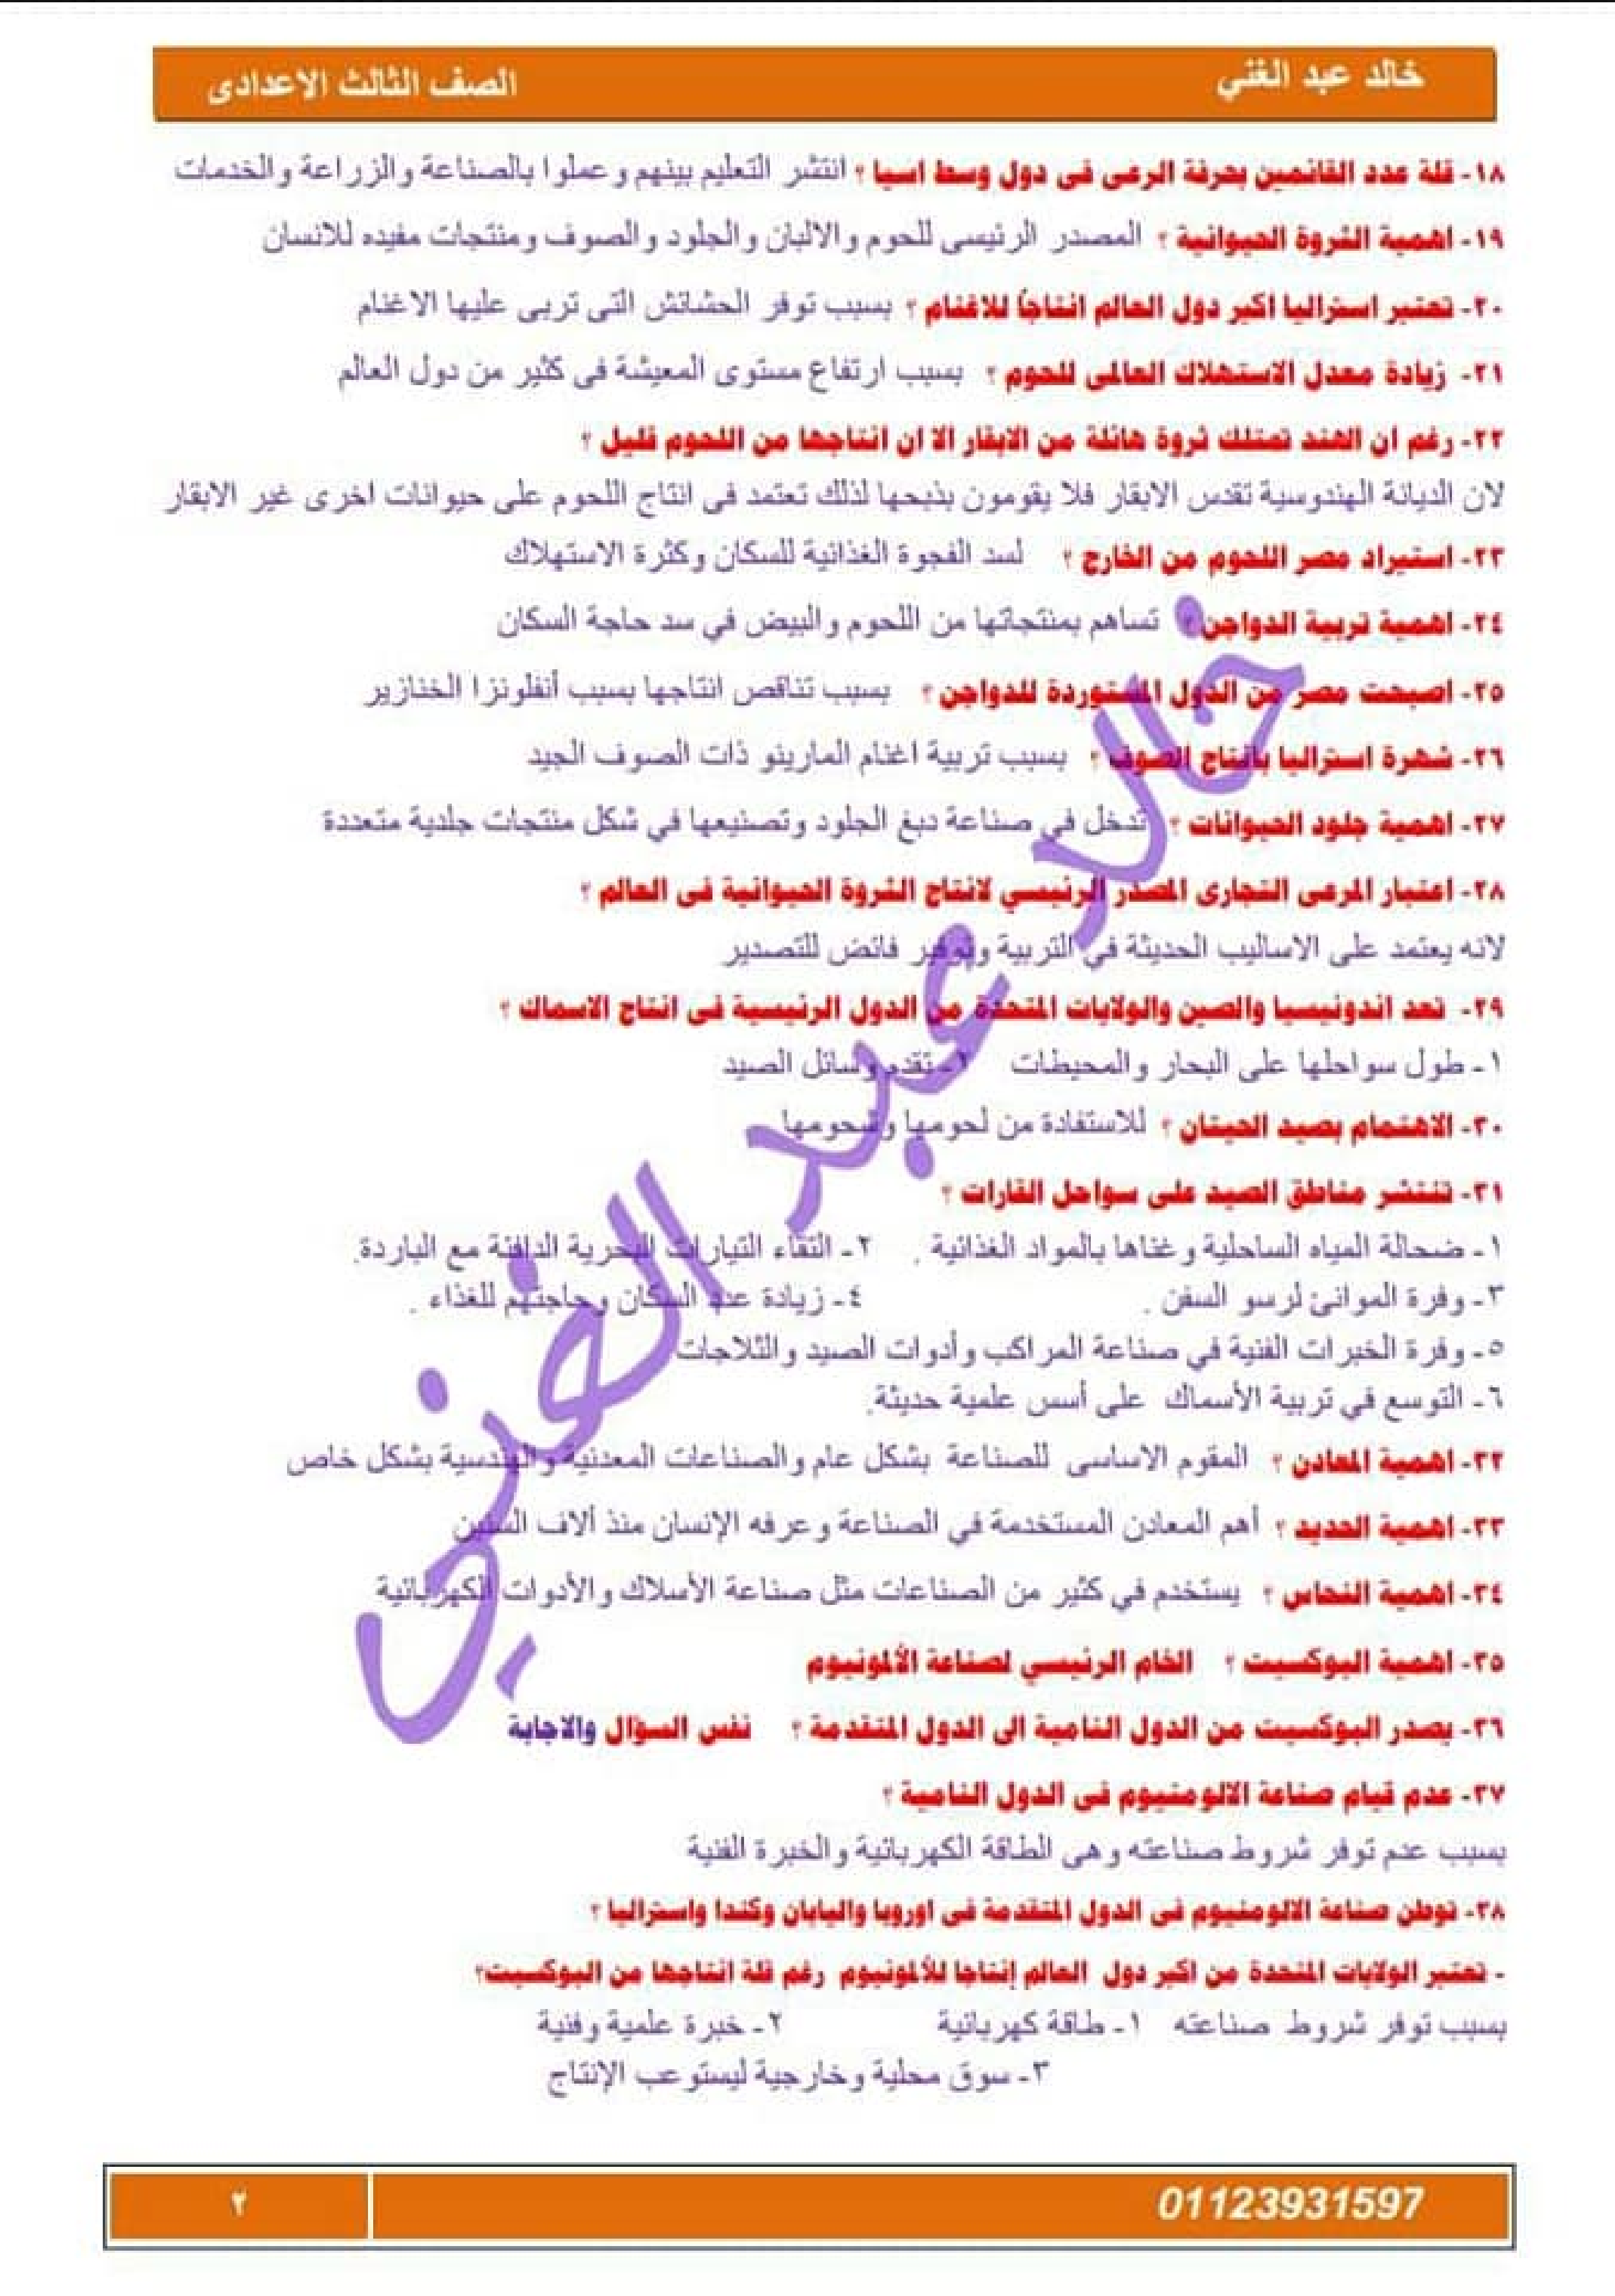 خالد عبد الغني
الصف الثالث الاعدادى
١٨- قلة عدد القائمين بحرفة الرعى فى دول وسط اسيا ؟ انتشر التعليم بينهم وعملوا بالصناعة والزراعة والخدمات
١٩- اهمية الثروة الحيوانية ؟ المصدر الرئيسى للحوم والالبان والجلود والصوف ومنتجات مفيده للانسان
٢٠- تعتبر استراليا اكبر دول العالم انتاجًا للاغنام ؟ بسبب توفر الحشائش التى تربى عليها الاغنام
٢١- زيادة معدل الاستهلاك العالمى للحوم ؟ بسبب ارتفاع مستوى المعيشة فى كثير من دول العالم
٢٢- رغم ان الهند تمتلك ثروة هائلة من الابقار الا ان انتاجها من اللحوم قليل ؟
لان الديانة الهندوسية تقدس الابقار فلا يقومون بذبحها لذلك تعتمد فى انتاج اللحوم على حيوانات اخرى غير الابقار
٢٣- استيراد مصر اللحوم من الخارج ؟ لسد الفجوة الغذائية للسكان وكثرة الاستهلاك
٢٤- اهمية تربية الدواجن ؟ تساهم بمنتجاتها من اللحوم والبيض في سد حاجة السكان
٢٥- اصبحت مصر من الدول المستوردة للدواجن ؟ بسبب تناقص انتاجها بسبب أنفلونزا الخنازير
٢٦- شهرة استراليا بانتاج الصوف ؟ بسبب تربية اغنام المارينو ذات الصوف الجيد
٢٧- اهمية جلود الحيوانات ؟ تدخل في صناعة دبغ الجلود وتصنيعها في شكل منتجات جلدية متعددة
٢٨- اعتبار المرعى التجارى المصدر الرئيسي لانتاج الثروة الحيوانية فى العالم ؟
لانه يعتمد على الاساليب الحديثة في التربية وتوفير فائض للتصدير
٢٩- تعد اندونيسيا والصين والولايات المتحدة من الدول الرئيسية فى انتاج الاسماك ؟
١- طول سواحلها على البحار والمحيطات ٢- تقدم وسائل الصيد
٣٠- الاهتمام بصيد الحيتان ؟ للاستفادة من لحومها وشحومها
٣١- تنتشر مناطق الصيد على سواحل القارات ؟
١- ضحالة المياه الساحلية وغناها بالمواد الغذائية . ٢- التقاء التيارات البحرية الدافئة مع الباردة.
٣- وفرة الموانئ لرسو السفن . ٤- زيادة عدد السكان وحاجتهم للغذاء .
٥- وفرة الخبرات الفنية في صناعة المراكب وأدوات الصيد والثلاجات
٦- التوسع في تربية الأسماك على أسس علمية حديثة.
٣٢- اهمية المعادن ؟ المقوم الاساسى للصناعة بشكل عام والصناعات المعدنية والهندسية بشكل خاص
٣٣- اهمية الحديد ؟ أهم المعادن المستخدمة في الصناعة وعرفه الإنسان منذ ألاف السنين
٣٤- اهمية النحاس ؟ يستخدم في كثير من الصناعات مثل صناعة الأسلاك والأدوات الكهربائية
٣٥- اهمية البوكسيت ؟ الخام الرئيسي لصناعة الألمونيوم
٣٦- يصدر البوكسيت من الدول النامية الى الدول المتقدمة ؟ نفس السؤال والاجابة
٣٧- عدم قيام صناعة الالومنيوم فى الدول النامية ؟
بسبب عدم توفر شروط صناعته وهى الطاقة الكهربائية والخبرة الفنية
٣٨- توطن صناعة الالومنيوم فى الدول المتقدمة فى اوروبا واليابان وكندا واستراليا ؟
- تعتبر الولايات المتحدة من اكبر دول العالم إنتاجا للألمونيوم رغم قلة انتاجها من البوكسيت؟
بسبب توفر شروط صناعته ١- طاقة كهربائية ٢- خبرة علمية وفنية
٣- سوق محلية وخارجية ليستوعب الإنتاج
خالد عبد الغني
01123931597
٢